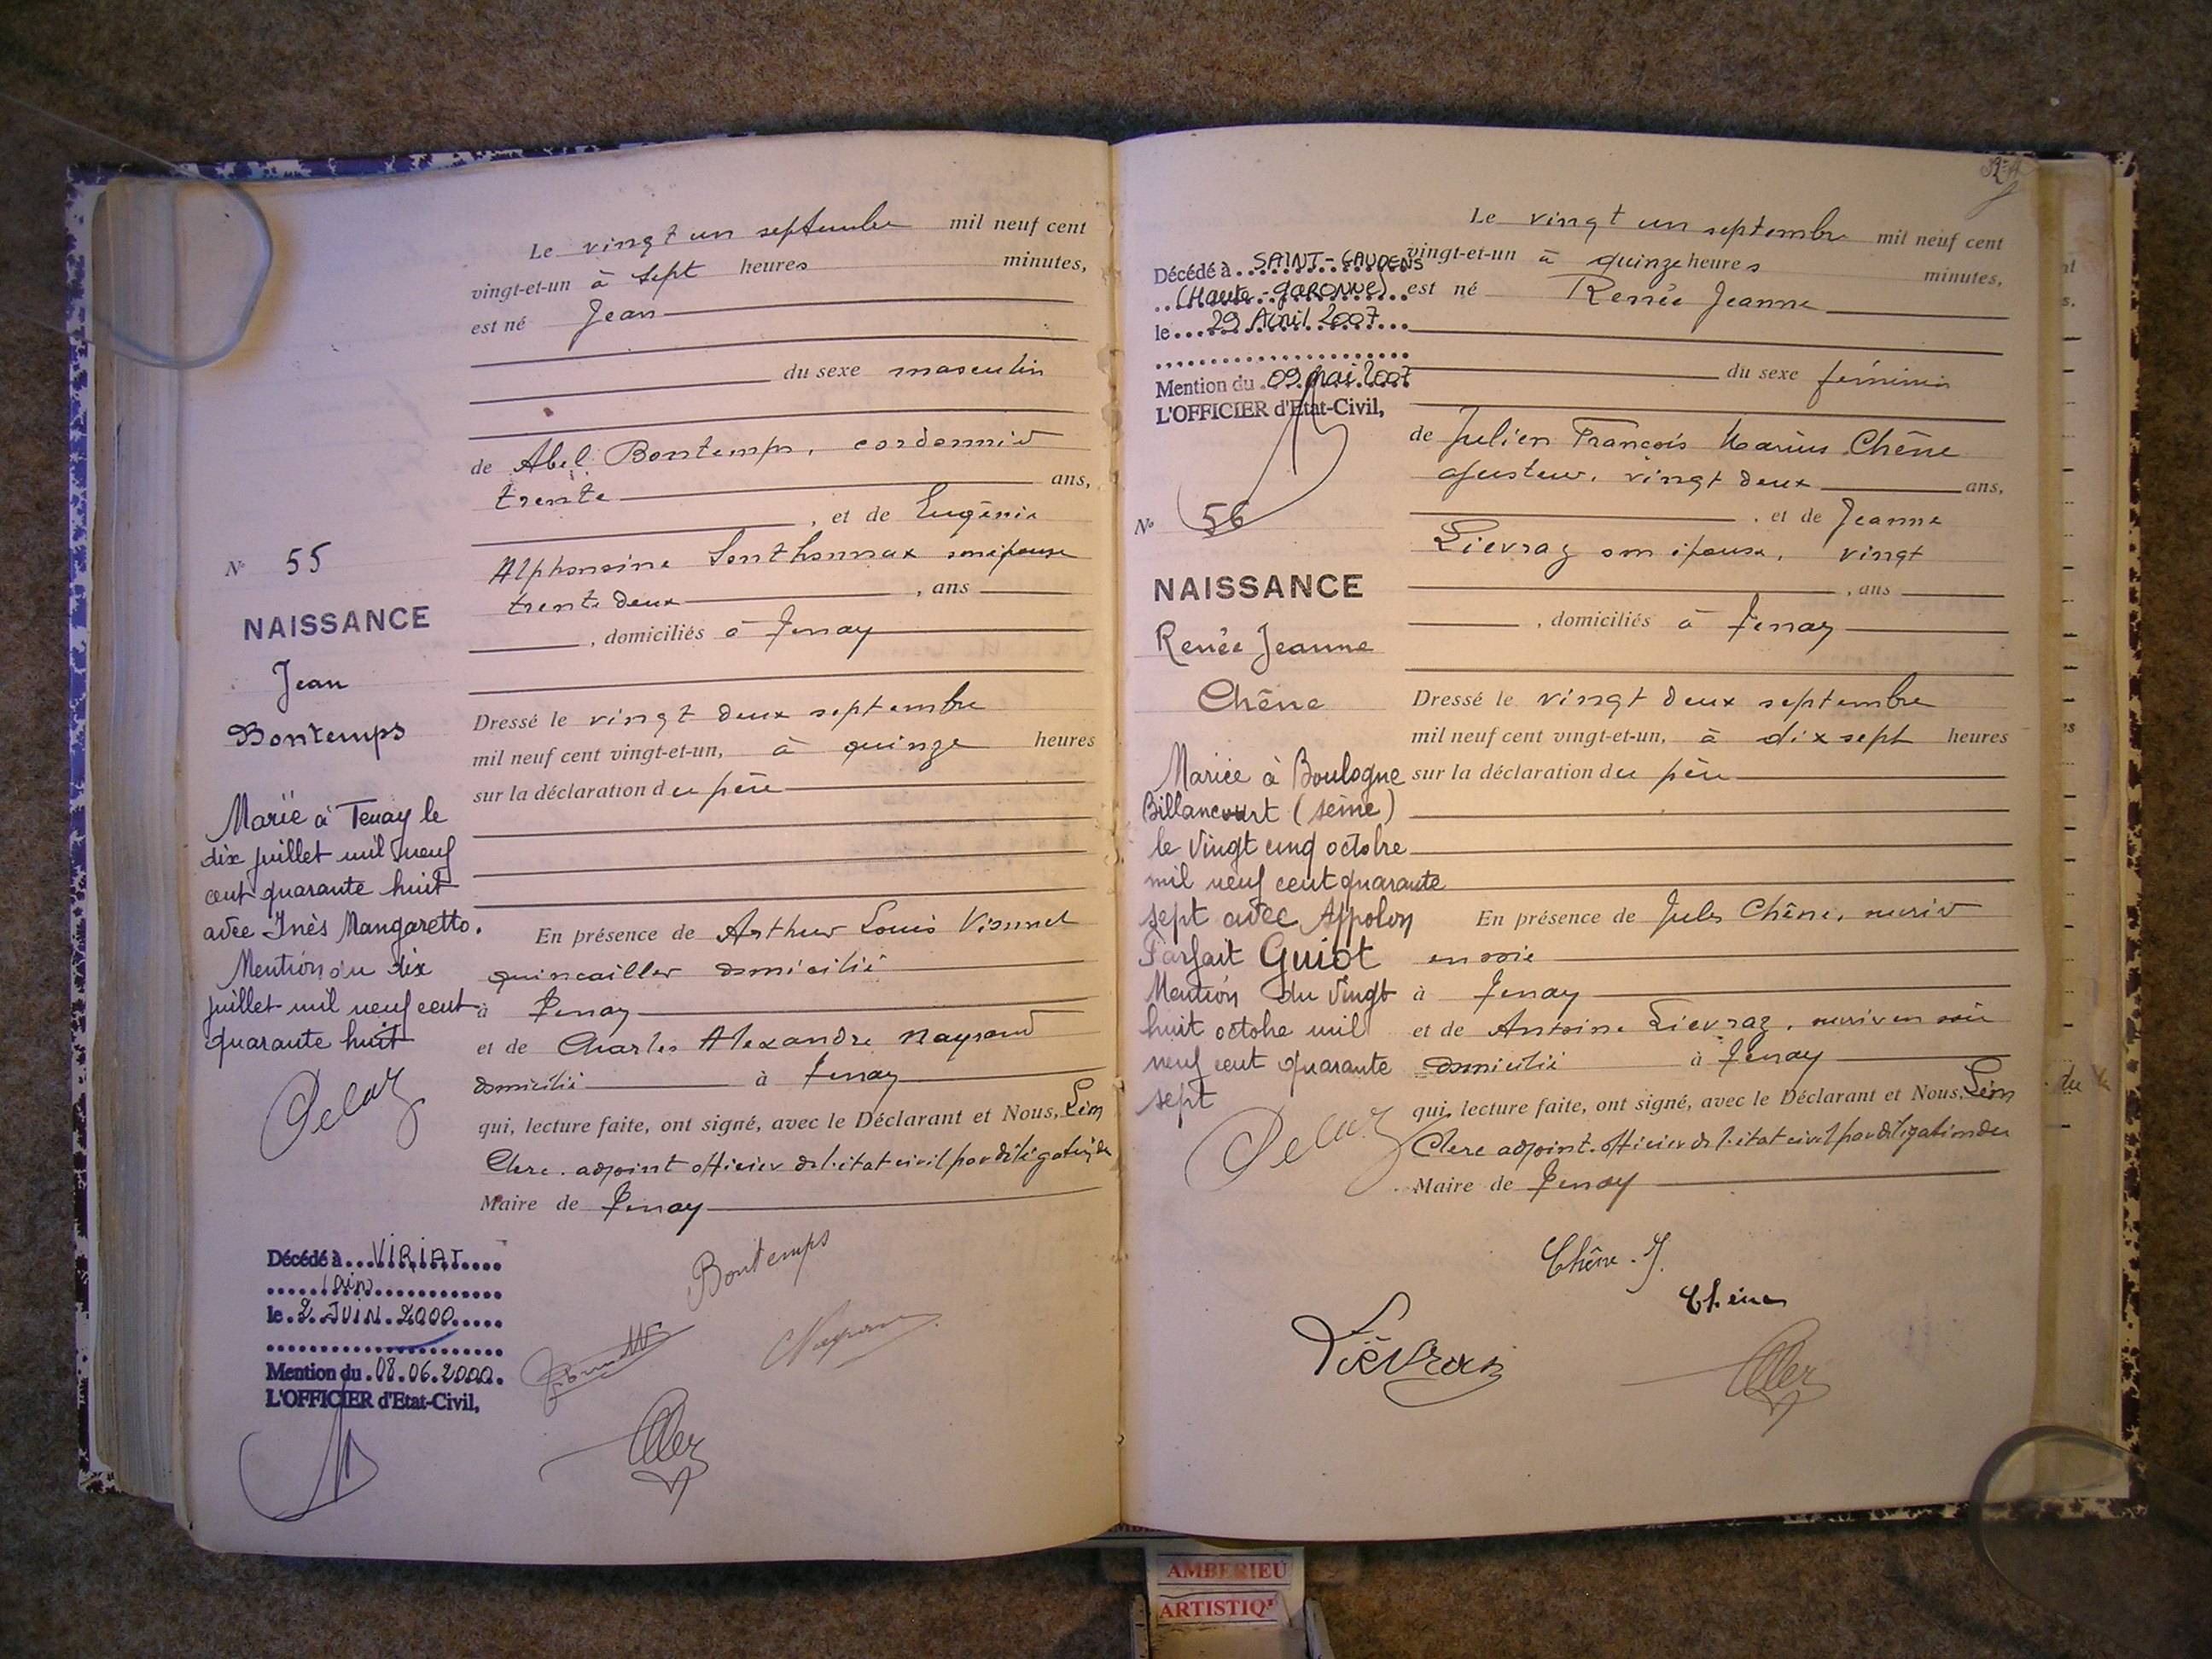 Le vingt un septembre mil neuf cent
vingt-et-un à sept heures minutes,
est né Jean
du sexe masculin
de Abel Bontemps, cordonnier
trente ans,
, et de Eugénie
Alphonsine Sonthonnax son épouse
trente deux , ans
, domiciliés à Tenay
Dressé le vingt deux septembre
mil neuf cent vingt-et-un, à quinze heures
sur la déclaration du père
En présence de Arthur Louis
quincailler domicilié
à Tenay
et de Charles Alexandre Naysand
domicilié à Tenay
qui, lecture faite, ont signé, avec le Déclarant et Nous, Léon
Clerc. adjoint officier de l'état civil par délégation du
Maire de Tenay
Bontemps
N° 55
NAISSANCE
Jean
Bontemps
Marié à Tenay le
dix juillet mil neuf
cent quarante huit
avec Inès Mangaretto.
Mention du dix
juillet mil neuf cent
quarante huit
Décédé à VIRIAT
(ain)
le 2 JUIN 2000
Mention du 08.06.2000
L'OFFICIER d'Etat-Civil,
Le vingt un septembre mil neuf cent
vingt-et-un à quinze heures minutes,
est né Renée Jeanne
du sexe féminin
de Julien François Marius Chêne
ajusteur, vingt deux ans,
, et de Jeanne
Lievraz son épouse, vingt
, ans
, domiciliés à Tenay
Dressé le vingt deux septembre
mil neuf cent vingt-et-un, à dix sept heures
sur la déclaration du père
En présence de Jules Chêne,
en soie
à Tenay
et de Antoine Lievraz, en soie
domicilié à Tenay
qui, lecture faite, ont signé, avec le Déclarant et Nous, Léon
Clerc adjoint officier de l'état civil par délégation du
Maire de Tenay
Chêne. J.
Chêne
Lièvraz
Décédé à SAINT-GAUDENS
(Haute-GARONNE)
le 29 Avril 2007
Mention du 09 Mai 2007
L'OFFICIER d'Etat-Civil,
N° 56
NAISSANCE
Renée Jeanne
Chêne
Mariée à Boulogne
Billancourt (Seine)
le vingt cinq octobre
mil neuf cent quarante
sept avec Appolon
Parfait Guiot
Mention du vingt
huit octobre mil
neuf cent quarante
sept
du
AMBERIEU
ARTISTIQ